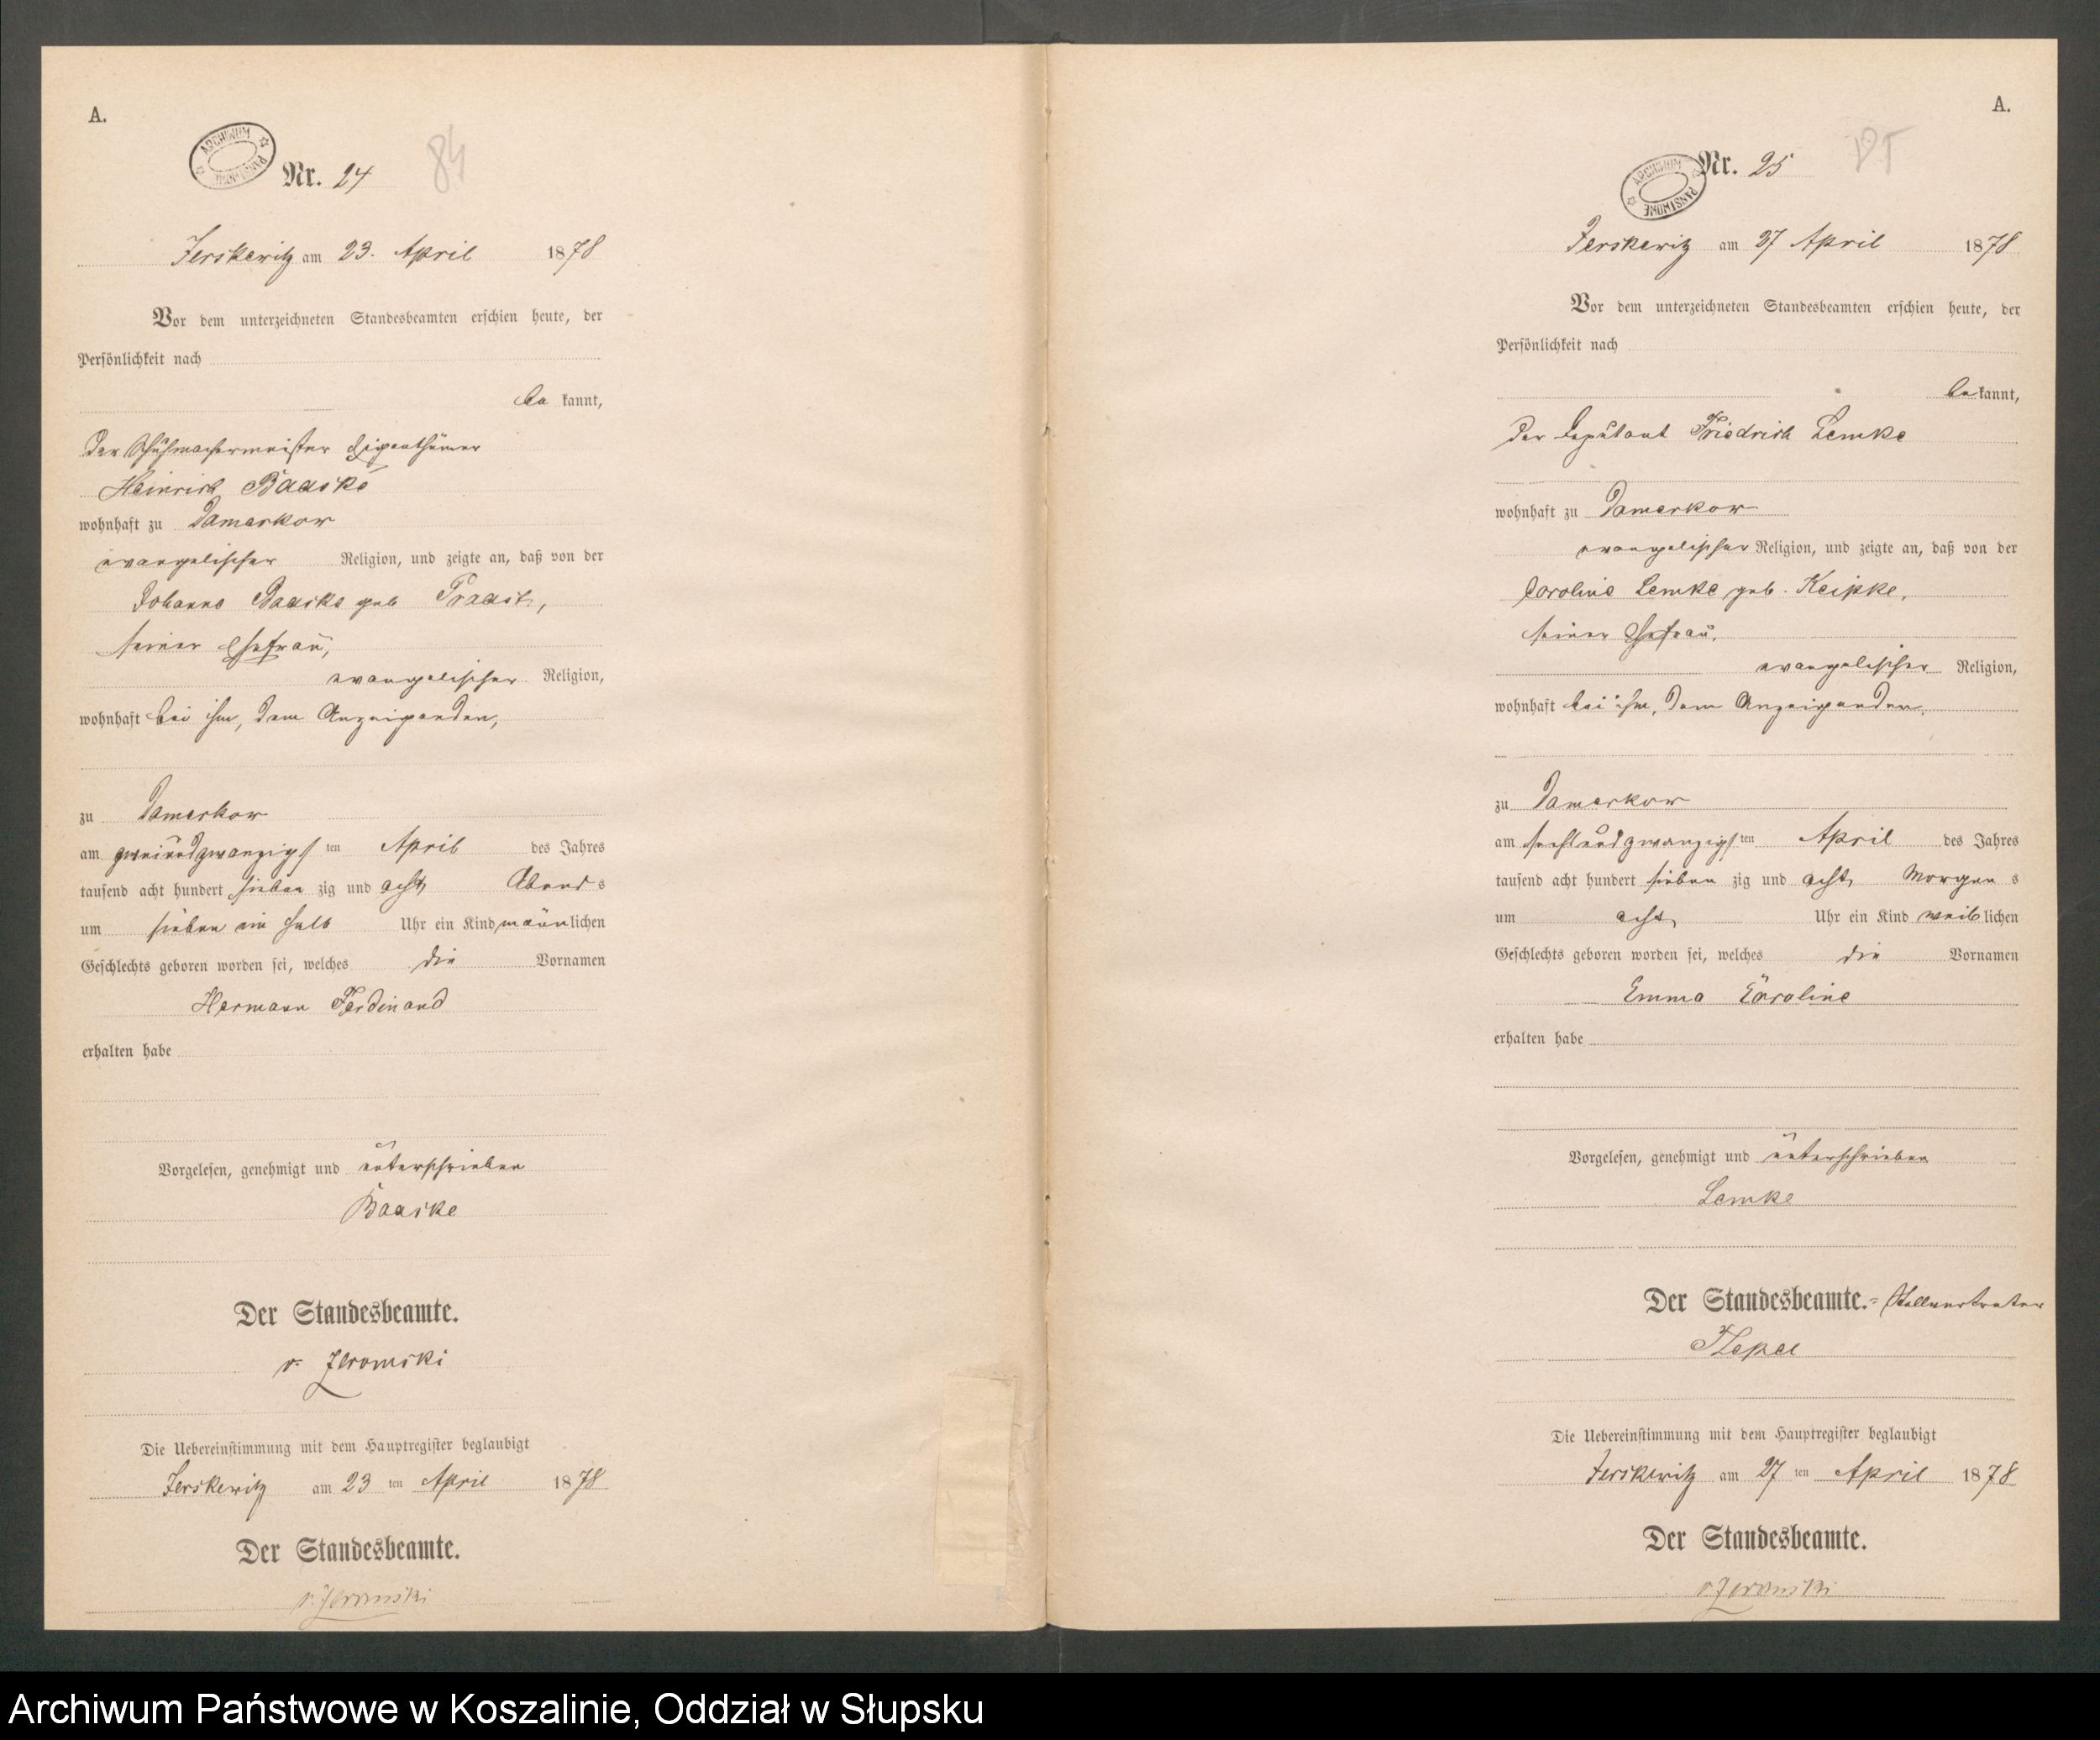 A.
ARCHIWUM PAŃSTWOWE
Nr. 24
84
Jerskewitz am 23. April 1878
Vor dem unterzeichneten Standesbeamten erschien heute, der
Persönlichkeit nach
bekannt,
der Schuhmachermeister Eigenthümer
Heinrich Baaske
wohnhaft zu Damerkow
evangelischer Religion, und zeigte an, daß von der
Johanne Baaske geb
seiner Ehefrau,
evangelischer Religion,
wohnhaft bei ihm, dem Anzeigenden,
zu Damerkow
am zweiundzwanzigsten April des Jahres
tausend acht hundert siebenzig und acht Abends
um sieben ein halb Uhr ein Kind männlichen
Geschlechts geboren worden sei, welches die Vornamen
Hermann Ferdinand
erhalten habe
Vorgelesen, genehmigt und unterschrieben
Baaske
Der Standesbeamte.
v. Zeromski
Die Uebereinstimmung mit dem Hauptregister beglaubigt
Jerskewitz am 23ten April 1878
Der Standesbeamte.
v. Zeromski
A.
ARCHIWUM PAŃSTWOWE
Nr. 25
Jerskewitz am 27 April 1878
Vor dem unterzeichneten Standesbeamten erschien heute, der
Persönlichkeit nach
bekannt,
der Deputant Friedrich Lemke
wohnhaft zu Damerkow
evangelischer Religion, und zeigte an, daß von der
Caroline Lemke geb. Keipke,
seiner Ehefrau,
evangelischer Religion,
wohnhaft bei ihm, dem Anzeigenden,
zu Damerkow
am sechsundzwanzigsten April des Jahres
tausend acht hundert siebenzig und acht Morgens
um acht Uhr ein Kind weiblichen
Geschlechts geboren worden sei, welches die Vornamen
Emma Caroline
erhalten habe
Vorgelesen, genehmigt und unterschrieben
Lemke
Der Standesbeamte.= Stellvertreter
Die Uebereinstimmung mit dem Hauptregister beglaubigt
Jerskewitz am 27ten April 1878
Der Standesbeamte.
v. Zeromski
Archiwum Państwowe w Koszalinie, Oddział w Słupsku